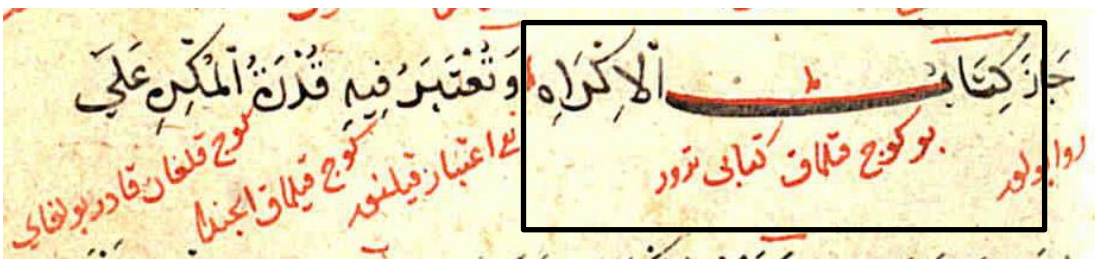 جَازَ كِتَابُ الْاِكْرَاهِ وَتُعْتَبَرُ فِيهِ قُدْرَةُ الْمُكْرِهِ عَلَى
روا بولور بو كوج قلماق كتابى ترور تقى اعتبار قيلنور كوج قيلماق ايجندا كوج قلغان قادر بولغاى